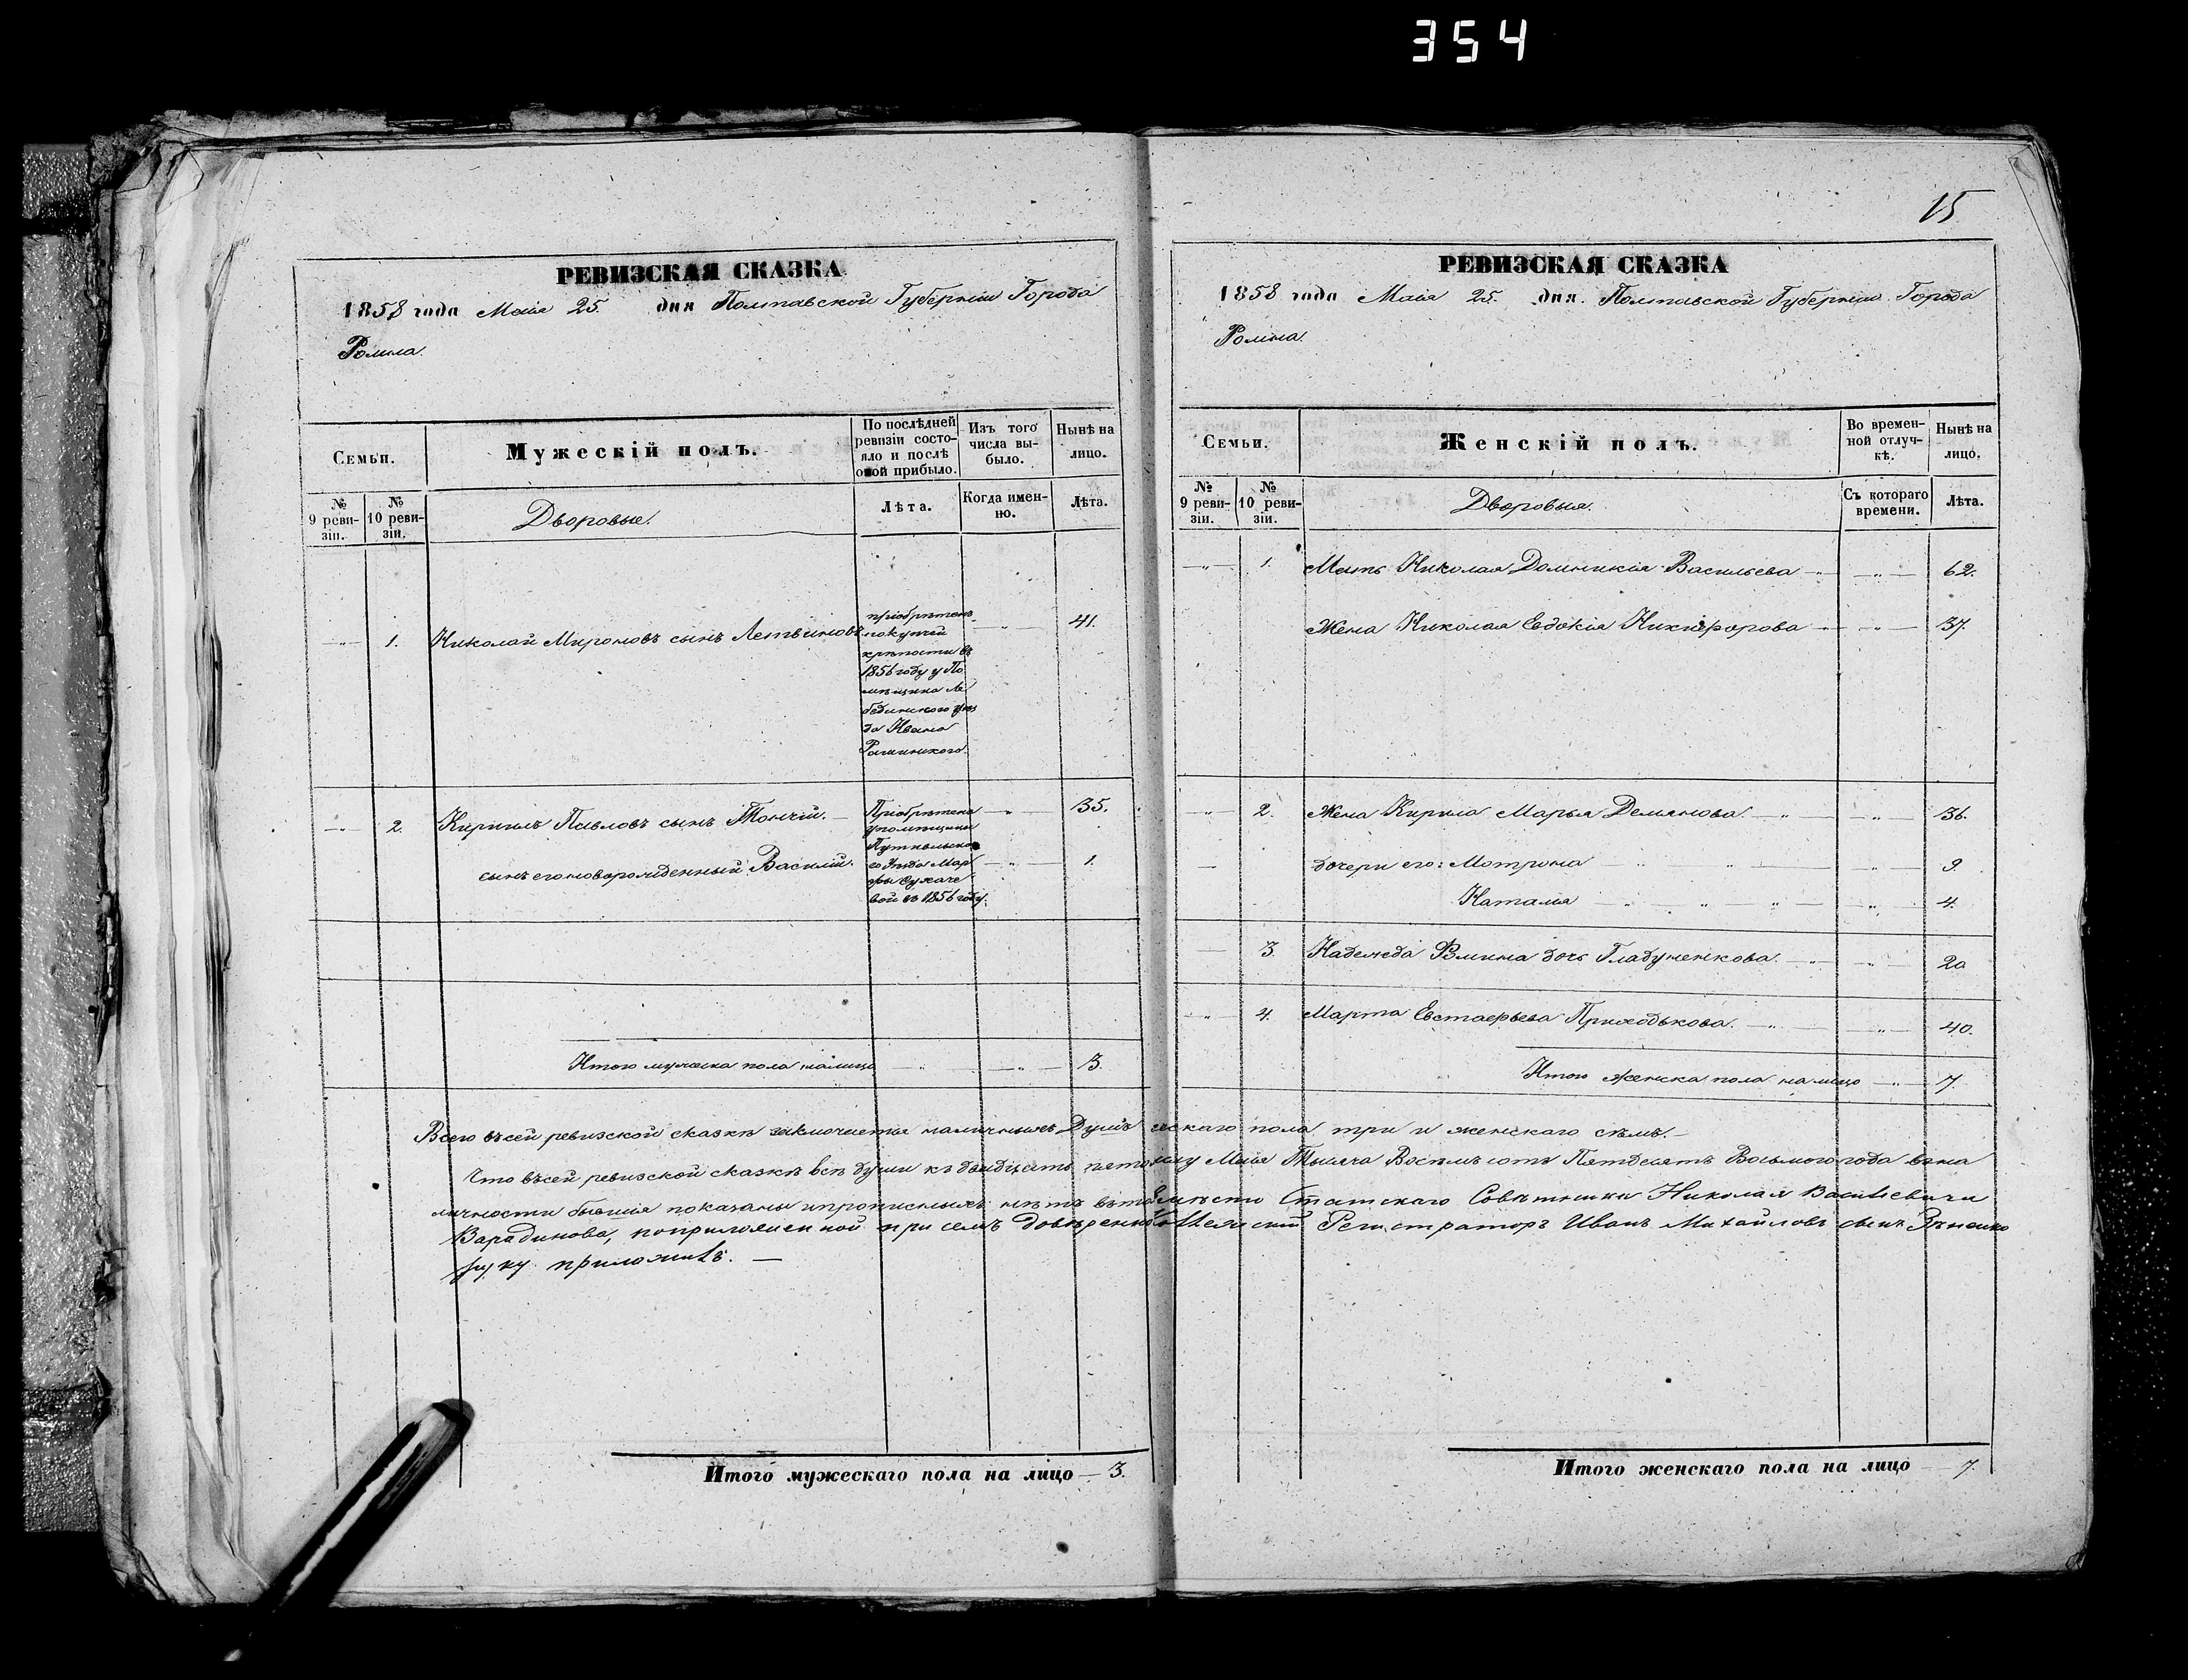 354
РЕВИЗСКАЯ СКАЗКА
1858 года Маія 25. дня Полтавской Губерніи Города
Ромна.
Семьи.
Мужескій полъ.
По послѣдней
ревизіи состо-
яло и послѣ
оной прибыло.
Изъ того
числа вы-
было.
Нынѣ на
лицо.
№
9 реви-
зіи.
№
10 реви-
зіи.
Дворовые.
Лѣта.
Когда имен-
но.
Лѣта.
1. Николай Мироновъ сынъ Летвиновъ 41.
пріобрѣтенъ
покупчей
крѣпости въ
1856 году у По
мѣщика Ле
бединского уѣз
да Ивана
2. Кирилъ Павловъ сынъ Тончій. 35.
сынъ его новорожденный Василій. 1.
Пріобрѣтена
у помѣщицы
Путивльска
го Уѣзда Мар
фы
вой въ 1856 году.
Итого мужеска пола налицо 3.
15
РЕВИЗСКАЯ СКАЗКА
1858 года Маія 25. дня. Полтавской Губерніи Города
Ромна.
Семьи.
Женскій полъ.
Во времен-
ной отлуч-
кѣ.
Нынѣ на
лицо.
№
9 реви-
зіи.
№
10 реви-
зіи.
Дворовыя.
Съ котораго
времени.
Лѣта.
1. Мать Николая Домникія Васильева 62.
Жена Николая Евдокія Никифорова 37.
2. Жена Кирила Марья Демянова. 36.
дочери его: Мотрона 9.
Наталія 4.
3. Надежда дочь Гладуненкова. 20
4. Марта Евстафьева Приходькова. 40.
Итого женска пола на лицо 7.
Всего въ сей ревизской сказкѣ заключается наличныхъ Душъ ескаго пола три и женскаго сѣмъ.
Что въ сей ревизской сказкѣ всѣ души къ двадцать пятому Маія Тысяча Восемъ сотъ Пятдесятъ Восьмого года въ на
личности бывшія показаны и прописныхъ нѣтъ въ томъ вмѣсто Статскаго Совѣтника Николая Васильевича
Варадинова, по приложенной при семъ довѣренно Регистраторъ Иванъ Михайловъ сынъ
руку приложилъ.
Итого мужескаго пола на лицо 3.
Итого женскаго пола на лицо 7.